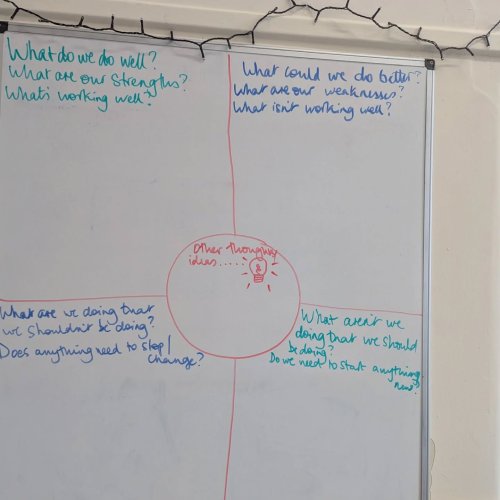 What do we do well?
What are our strengths?
What's working well?
What could we do better?
What are our weaknesses?
What isn't working well?
Other thoughts/
ideas.....
&
What are we doing that
we shouldn't be doing?
Does anything need to stop/
change?
What aren't we
doing that we should
be doing?
Do we need to start anything
new?